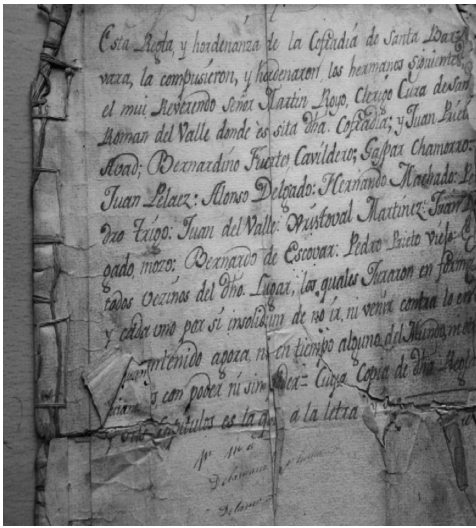 Esta Regla y hordenanza de la Cofradiá de Santa Bar
vara, la compusieron, y hordenaron los hermanos siguientes,
el mui Reverendo Señor Martin Royo, Clerigo Cura de San
Roman del Valle donde es sita dha. Cofradia; y Juan Prieto
Avad; Bernardino Fuertes Cavildero; Gaspar Chamorro:
Juan Pelaez: Alonso Delgado: Hernando Machado: Pe
dro Trigo: Juan del Valle: Christoval Martinez: Juan
gado, mozo; Bernardo de Escovar: Pedro Prieto viejo
todos vezinos del dho. Lugar, los quales Juraron en forma
y cada uno por si insolidun de no ir, ni venir contra lo en
contenido agora, ni en tiempo alguno del Mundo,
con poder ni sin poder= Cuya Copia de dha Regla
Capitulos es la que a la letra